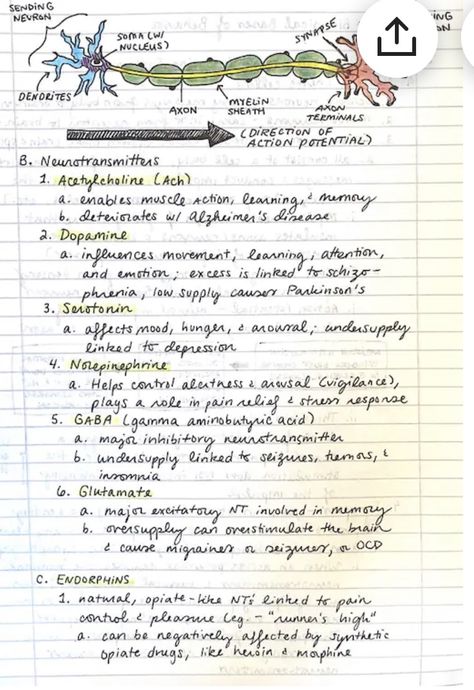 SENDING
NEURON
SOMA (W/
NUCLEUS)
SYNAPSE
DENDRITES
AXON
MYELIN
SHEATH
AXON
TERMINALS
(DIRECTION OF
ACTION POTENTIAL)
B. Neurotransmitters
1. Acetylcholine (Ach)
a. enables muscle action, learning, & memory
b. deteriorates w/ Alzheimer's disease
2. Dopamine
a. influences movement, learning, attention,
and emotion; excess is linked to schizo-
phrenia, low supply causes Parkinson's
3. Serotonin
a. affects mood, hunger, & arousal; undersupply
linked to depression
4. Norepinephrine
a. Helps control alertness & arousal (vigilance),
plays a role in pain relief & stress response
5. GABA (gamma aminobutyric acid)
a. major inhibitory neurotransmitter
b. undersupply linked to seizures, tremors, &
insomnia
6. Glutamate
a. major excitatory NT involved in memory
b. oversupply can overstimulate the brain
& cause migraines or seizures, or OCD
C. ENDORPHINS
1. natural, opiate-like NTs linked to pain
control & pleasure (eg. - "runner's high"
a. can be negatively affected by synthetic
opiate drugs, like heroin & morphine